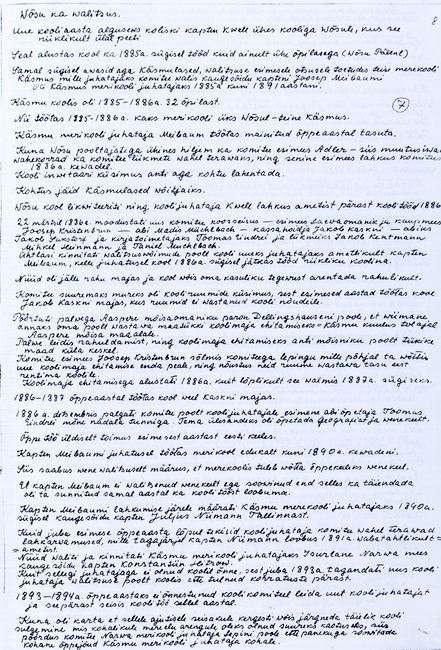 Wõsu ka walitsus.
8
Uue kooliaasta alguseks koliski kapten Kwell ühes kooliga Wõsule, kus see
riiklikult ülal peeti.
Seal alustas kool ka 1885a. sügisel tööd kuid ainult ühe õpilasega (Wõsu
Samal sügisel awasid aga Käsmulased, walitsuse esimesele otsusele toetudes teise merekooli
Käsmus mille juhatajaks komitee walis kaugesõidu kapteni Joosep Meibaumi
oli Käsmus merikooli juhatajaks 1885a kuni 1891 aastani.
Käsmu koolis oli 1885-1886a. 32 õpilast.
7
Nii töötas 1885-1886a. kaks merikooli üks Wõsul - teine Käsmus.
Käsmu merikooli juhataja Meibaum töötas mainitud õppeaastal tasuta.
Kuna Wõsu pooltajatega ühines hiljem ka komitee esimees Adler - siis muutusiwa
wahekorrad ka komitee liikmete wahel terawaks, ning senine esimees lahkus komitees
1886a. kewadel.
Kooli inwtaari küsimus anti aga kohtu lahentada.
Kohtus jäid Käsmulased wõitjaiks.
Wõsu kool likwideeriti ning kooli juhataja Kwell lahkus ametist pärast kool tööd 1886
22 märtsil 1886a. moodustati uus komitee koosseisus - esimus laewaomanik ja kaugesõi
Joosep Kristenbrun - abi Madis Michelbach - kassahoidja Jakob Kaskni - abiks
Jakob ja kirjatoimetajaks Toomas Eindrei ja liikmeiks Jakob Klentmann
Mihkel Heinmann ja Tanel Michelbach.
Ühtlasi kinnitati walitsuswõimude poolt kooli uueks juhatajaks ametlikult kapten
Meibaum, kelle juhatusel kool 1886a. sügisel jätkas tööd riikliku koolina.
Nüüd oli jälle rahu majas ja kool wõis oma kasuliku tegewust arentada rahulikult.
Komitee suuremaks mureks oli kooli ruumide küsimus, sest esimesed aastad töötas kool
Jakob Kaskni majas, kus ruumid ei wastanud kooli nõudeile.
Pöörduti palwega Aaspere mõisaomaniku paron Dellingshauseni poole, et wiimane
annaks oma poolt wastawa maatükki koolimaja ehitamiseks = Käsmu kuulus tolajal
Aaspere mõisa maa alale.
Palwe leidis rahuldamist, ning koolimaja ehitamiseks anti mõisniku poolt tükike
maad küla keskel.
Komitee esimes Joosep Kristenbrun sõlmis komiteega lepingu mille põhjal ta wõttis
uue koolimaja ehitamise enda peale, ning nõustus neid ruume wastawa tasu eest
rentima koolile.
Koolimaja ehitamisega alustati 1886a. kuid lõplikult see walmis 1887a. sügiseks.
1886-1887 õppeaastal töötas kool weel Kaskni majas.
1886a. detsembris palgati komitee poolt kooli juhatajale esimene abi õpetaja Toomas
Eindrei mõne nädala tunniga. Tema ülesandeks oli õpetada geograafiat ja wenekeelt.
Õppe töö üldiselt toimus esimesest aastast eesti keeles.
Kapten Meibaumi juhatusel töötas merikool edukalt kuni 1890a. kewadeni.
Siis saabus wenewalitsuselt määrus, et merekoolis tuleb wõtta õppekeeleks wenekeel.
Et kapten Meibaum ei walitsenud wenekeelt ega soowinud end selles ka täiendada
oli ta sunnitud samal aastal ka kooli tööst loobuma.
Kapten Meibaumi lahkumise järele määrati Käsmu merekooli juhatajaks 1890a.
sügisel kaugesõidu kapten Julius Niimann Tallinnast.
Kuid juba esimese õppeaasta lõpul tekisid koolijuhataja komitee wahel terawad
lahkarwamused, mille tagajärjel kapten Niimann loobus 1891a. wabatahtlikult =
= ametist.
Nüüd waliti ja kinnitati Käsmu merikooli juhatajaks Isurlane Narwa mees
kaugesõidu kapten Konstantin Petrow.
Kuid sellegi juhatajaga ei olnud koolil õnne, sest juba 1893a. tagandati uus kooli
juhataja walitsuse poolt koolis ette tulnud korratuste pärast.
1893-1894a. õppeaastaks ei õnnestunud kooli komiteel leida uut kooli juhatajat
ja seepärast seisis kooli töö sellel aastal.
Kuna oli karta et sellele ajutisele seisakule kergesti wõis järgneda täielik kooli
sulgemine mis kohalikule merele arengule oleks olnud suureks kaotuseks, siis
pöördus komitee Narwa merikooli juhataja Lepini poole ettepanekuga sõwitada
kohane õppejõud Käsmu merekooli juhataja kohale.